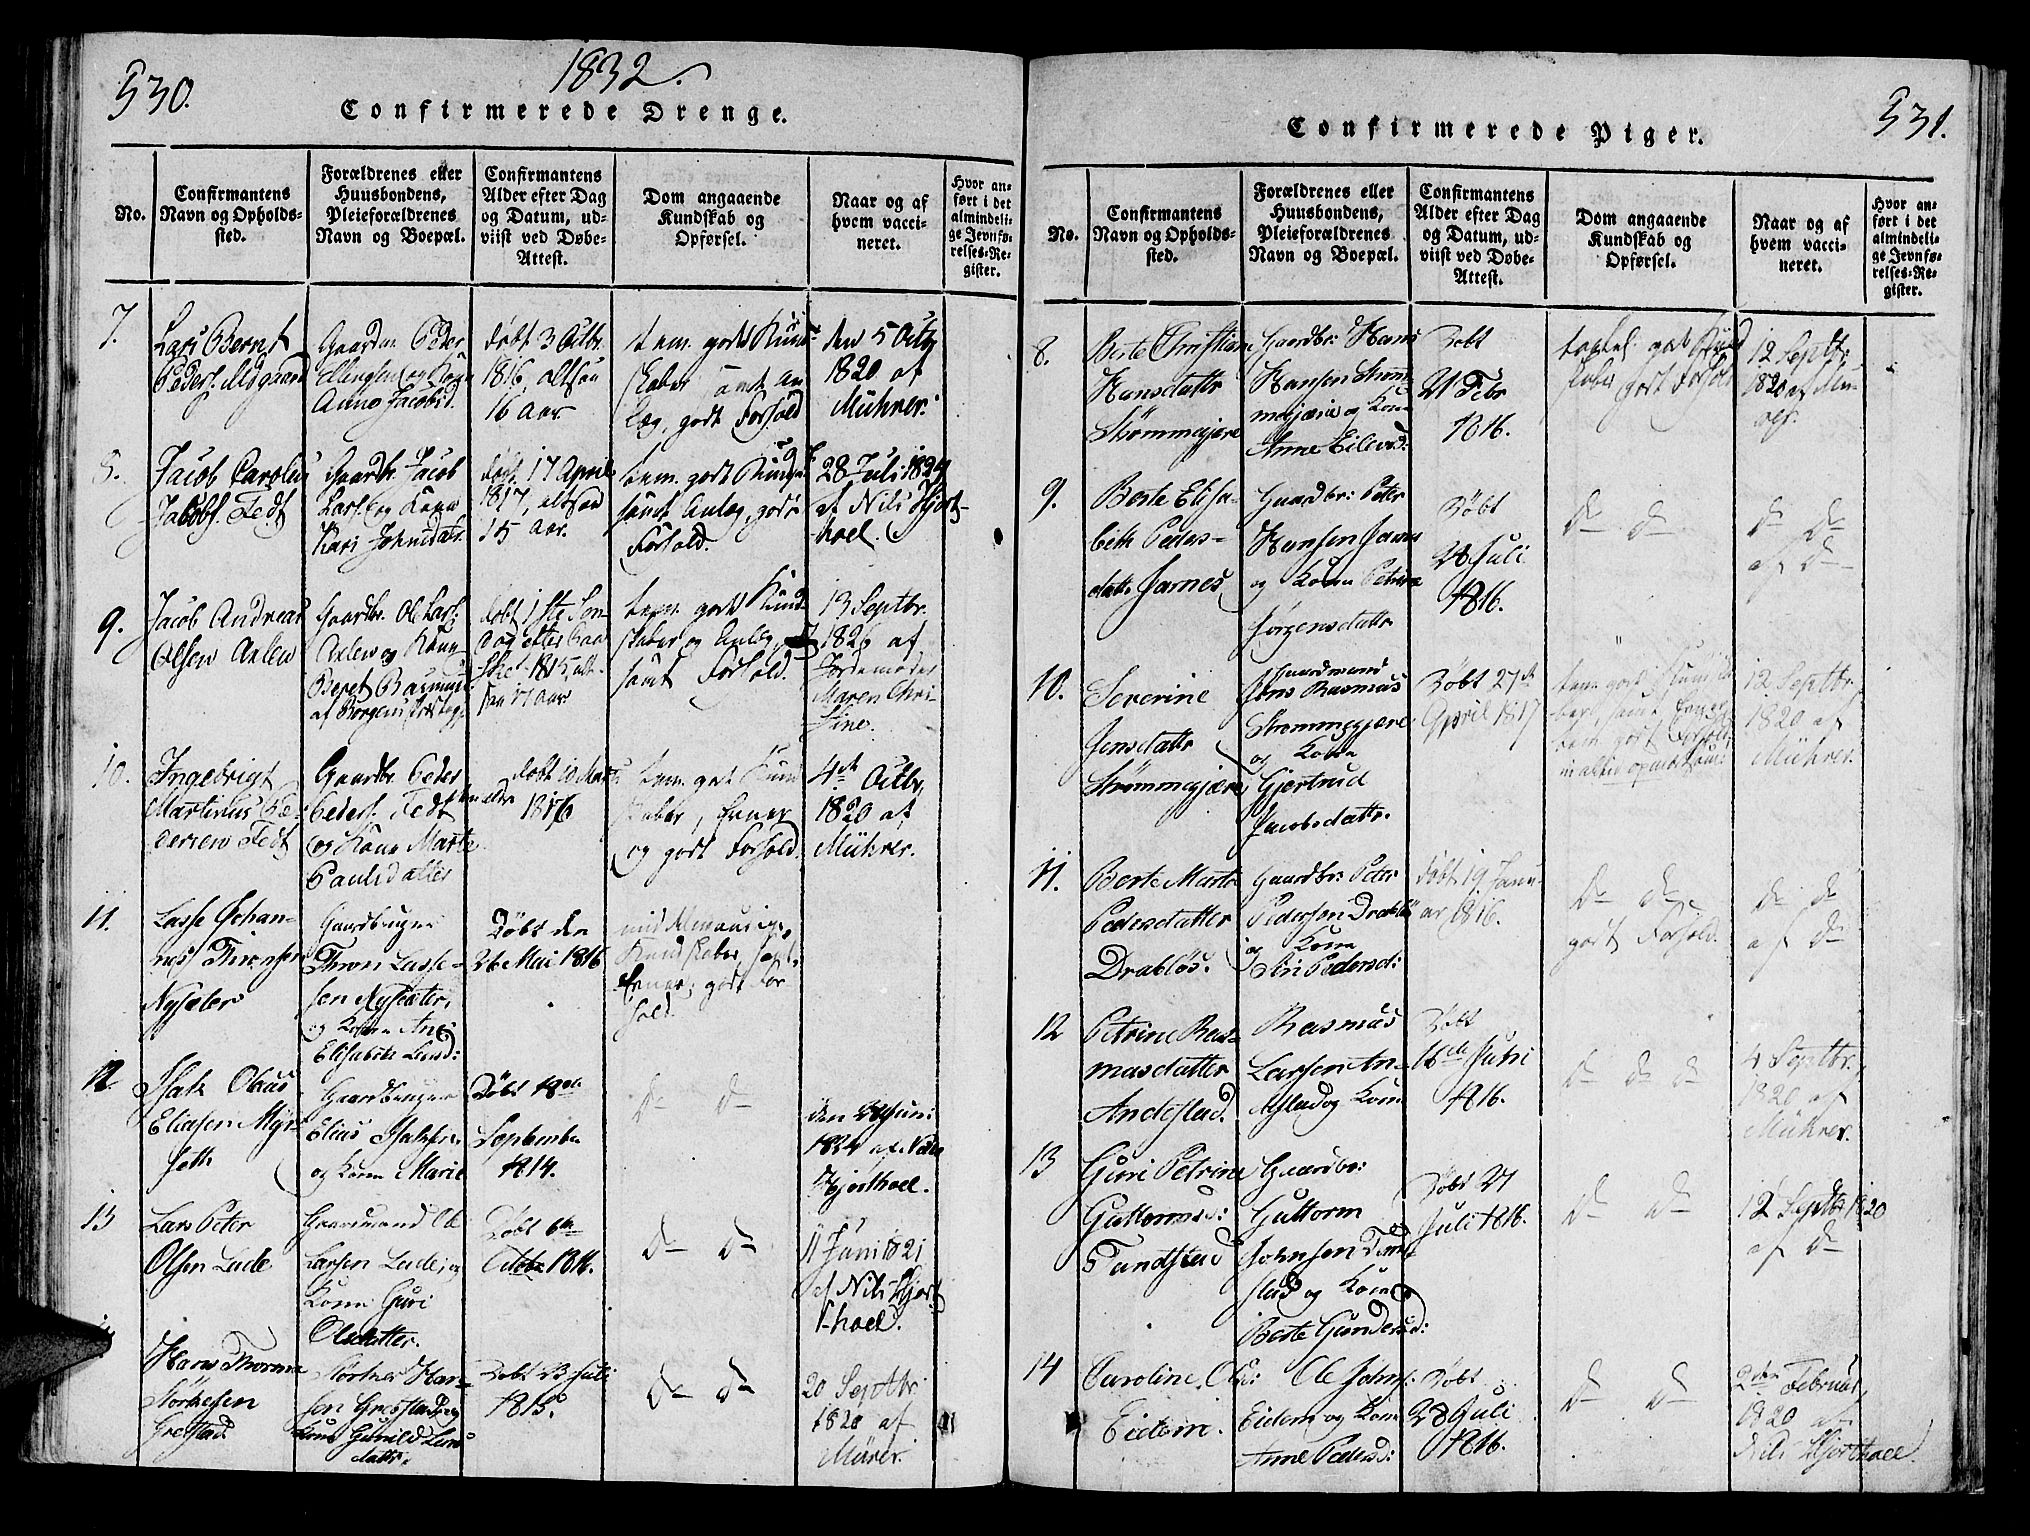 530.
1832.
Confirmerede Drenge.
No.
Confirmantens
Navn og Opholds-
sted.
Forældrenes eller
Huusbondens,
Pleieforældrenes
Navn og Boepæl.
Confirmantens
Alder efter Dag
og Datum, ud-
viist ved Døbe-
Attest.
Dom angaaende
Kundskab og
Opførsel.
Naar og af
hvem vacci-
neret.
Hvor an-
ført i det
almindeli-
ge Jevnfø-
relses-Re-
gister.
7.
Lars Bernt
Peders.
Gaardm. Peder
Ellingsen og Kone
Anne Jacobsd.
døbt 3 Octbr.
1816, altsaa
16 Aar.
tem. gode Kund-
skaber samt An-
læg, godt Forhold
den 5 Octb
1820 af
Mührer.
8.
Jacob Carolus
Jacobs. Fedt
Gaardbr. Jacob
Lars. og Kone
Kari Johnsdatt.
døbt 17 April
1817, altsaa
15 Aar.
tem. godt Kundsk.
samt Anlæg, godt
Forhold.
28 Juli 1824
af Nils Hjort-
hoel.
9.
Jacob Andreas
Olsen Axlew
Gaardbr. Ole Lars.
Axlew og Kone
Beret Rasmusd.
af Borgens
døbt 1ste Søn-
dag efter Paa
ske 1815, alt-
saa 17 Aar
tem. gode Kund-
skaber og Anlæg,
samt Forhold.
13 Septbr.
1820 af
Jordemoder
Maren Chri-
stine.
10.
Ingebrigt
Martinus Pe-
dersen Fedt
Gaardbr. Peder
Peders. Fedt
og Kone Marte
Paulsdatter
døbt 10 Marts
1816
tem. god Kund
skaber, Evner
og godt Forhold.
4de Octbr.
1820 af
Mührer.
11.
Lasse Johan-
nes Thronsen
Nysæter
Gaardbruger
Thron Lasse-
sen Nysæter,
og Kone Ane
Elisabete Larsd:
Døbt den
26 Mai 1816
Kundskaber,
Evner; godt For
hold.
12
Isak Olaus
Eliasen Myr-
seth
Gaardbruger
Elias Isaksen
og Kone Marie
Døbt 18de
September
1814.
D- D-
den Jun:
1824 af Nils
Hjorthoel.
13
Lars Peter
Olsen Lade
Gaardmand Ole
Larsen Lade, og
Kone Guri
Olsdatter.
Døbt 6te
Octobr 1816.
D- D-
11 Juni 1821
af Nils Hjort
hoel.
Hans Thomas
Størkesen
Grebstad
Størker Han-
sen Grebstad og
Kone Gunild Lars
datter.
Døbt 23 Juli
1815.
D- D-
20 Septbr.
1820 af
Mürer.
531.
Confirmerede Piger.
No.
Confirmantens
Navn og Opholds-
sted.
Forældrenes eller
Huusbondens,
Pleieforældrenes
Navn og Boepæl.
Confirmantens
Alder efter Dag
og Datum, ud-
viist ved Døbe-
Attest.
Dom angaaende
Kundskab og
Opførsel.
Naar og af
hvem vacci-
neret.
Hvor an-
ført i det
almindeli-
ge Jevnfø-
relses-Re-
gister.
8.
Berte Christiane
Hansdattr
Strømmegjære
Gaardbr: Hans
Hansen Strøm-
megjære og Kone
Anne Eilevsd:
Døbt
21 Febr
1816.
godt Forhold
12 Septbr:
1820 af Mü-
9.
Berte Elisa-
beth Peders-
dattr. Jarnes
Gaardbr: Peter
Hansen Jarnes
og Kone Petrine
Jørgensdattr
Døbt
28 Juli
1816.
D- D-
D- D-
af D-
10.
Severine
Jensdattr
Strømmegjære
Gaardmand
Jens Rasmus
Strømmegjære
og Kone
Gjertrud
Jacobsdattr.
Døbt 27de
April 1817
12 Septbr.
1820 af
Mührer.
11.
Berte Marte
Pedersdatter
Drabløs.
Gaardbr: Peter
Pedersen Drabløs
og Kone
Siri Pedersd:
døbt 19 Janu-
ar 1816.
D- D-
godt Forhold.
D- D-
af D-
12
Petrine Ras-
musdatter
Andestad.
Rasmus
Larsen An-
destad og Kone
Døbt
16de Juni
1816.
D- D- D-
4 Septbr.
1820 af
Mührer.
13
Guri Petrine
Guttormsd:
Tandstad
Gaardbr:
Guttorm
Johnsen Tand-
stad og Kone
Berte Gundersd:
Døbt 21
Juli 1816.
D- D-
12 Septbr 1820
af D-
14
Caroline Olsd:
Eidem.
Ole Johns.
Eidem og Kone
Anne Pedersd:
Døbt
28 Juli
1816.
D- D-
2den Februar
1820 af
Nils Hjorthoel.